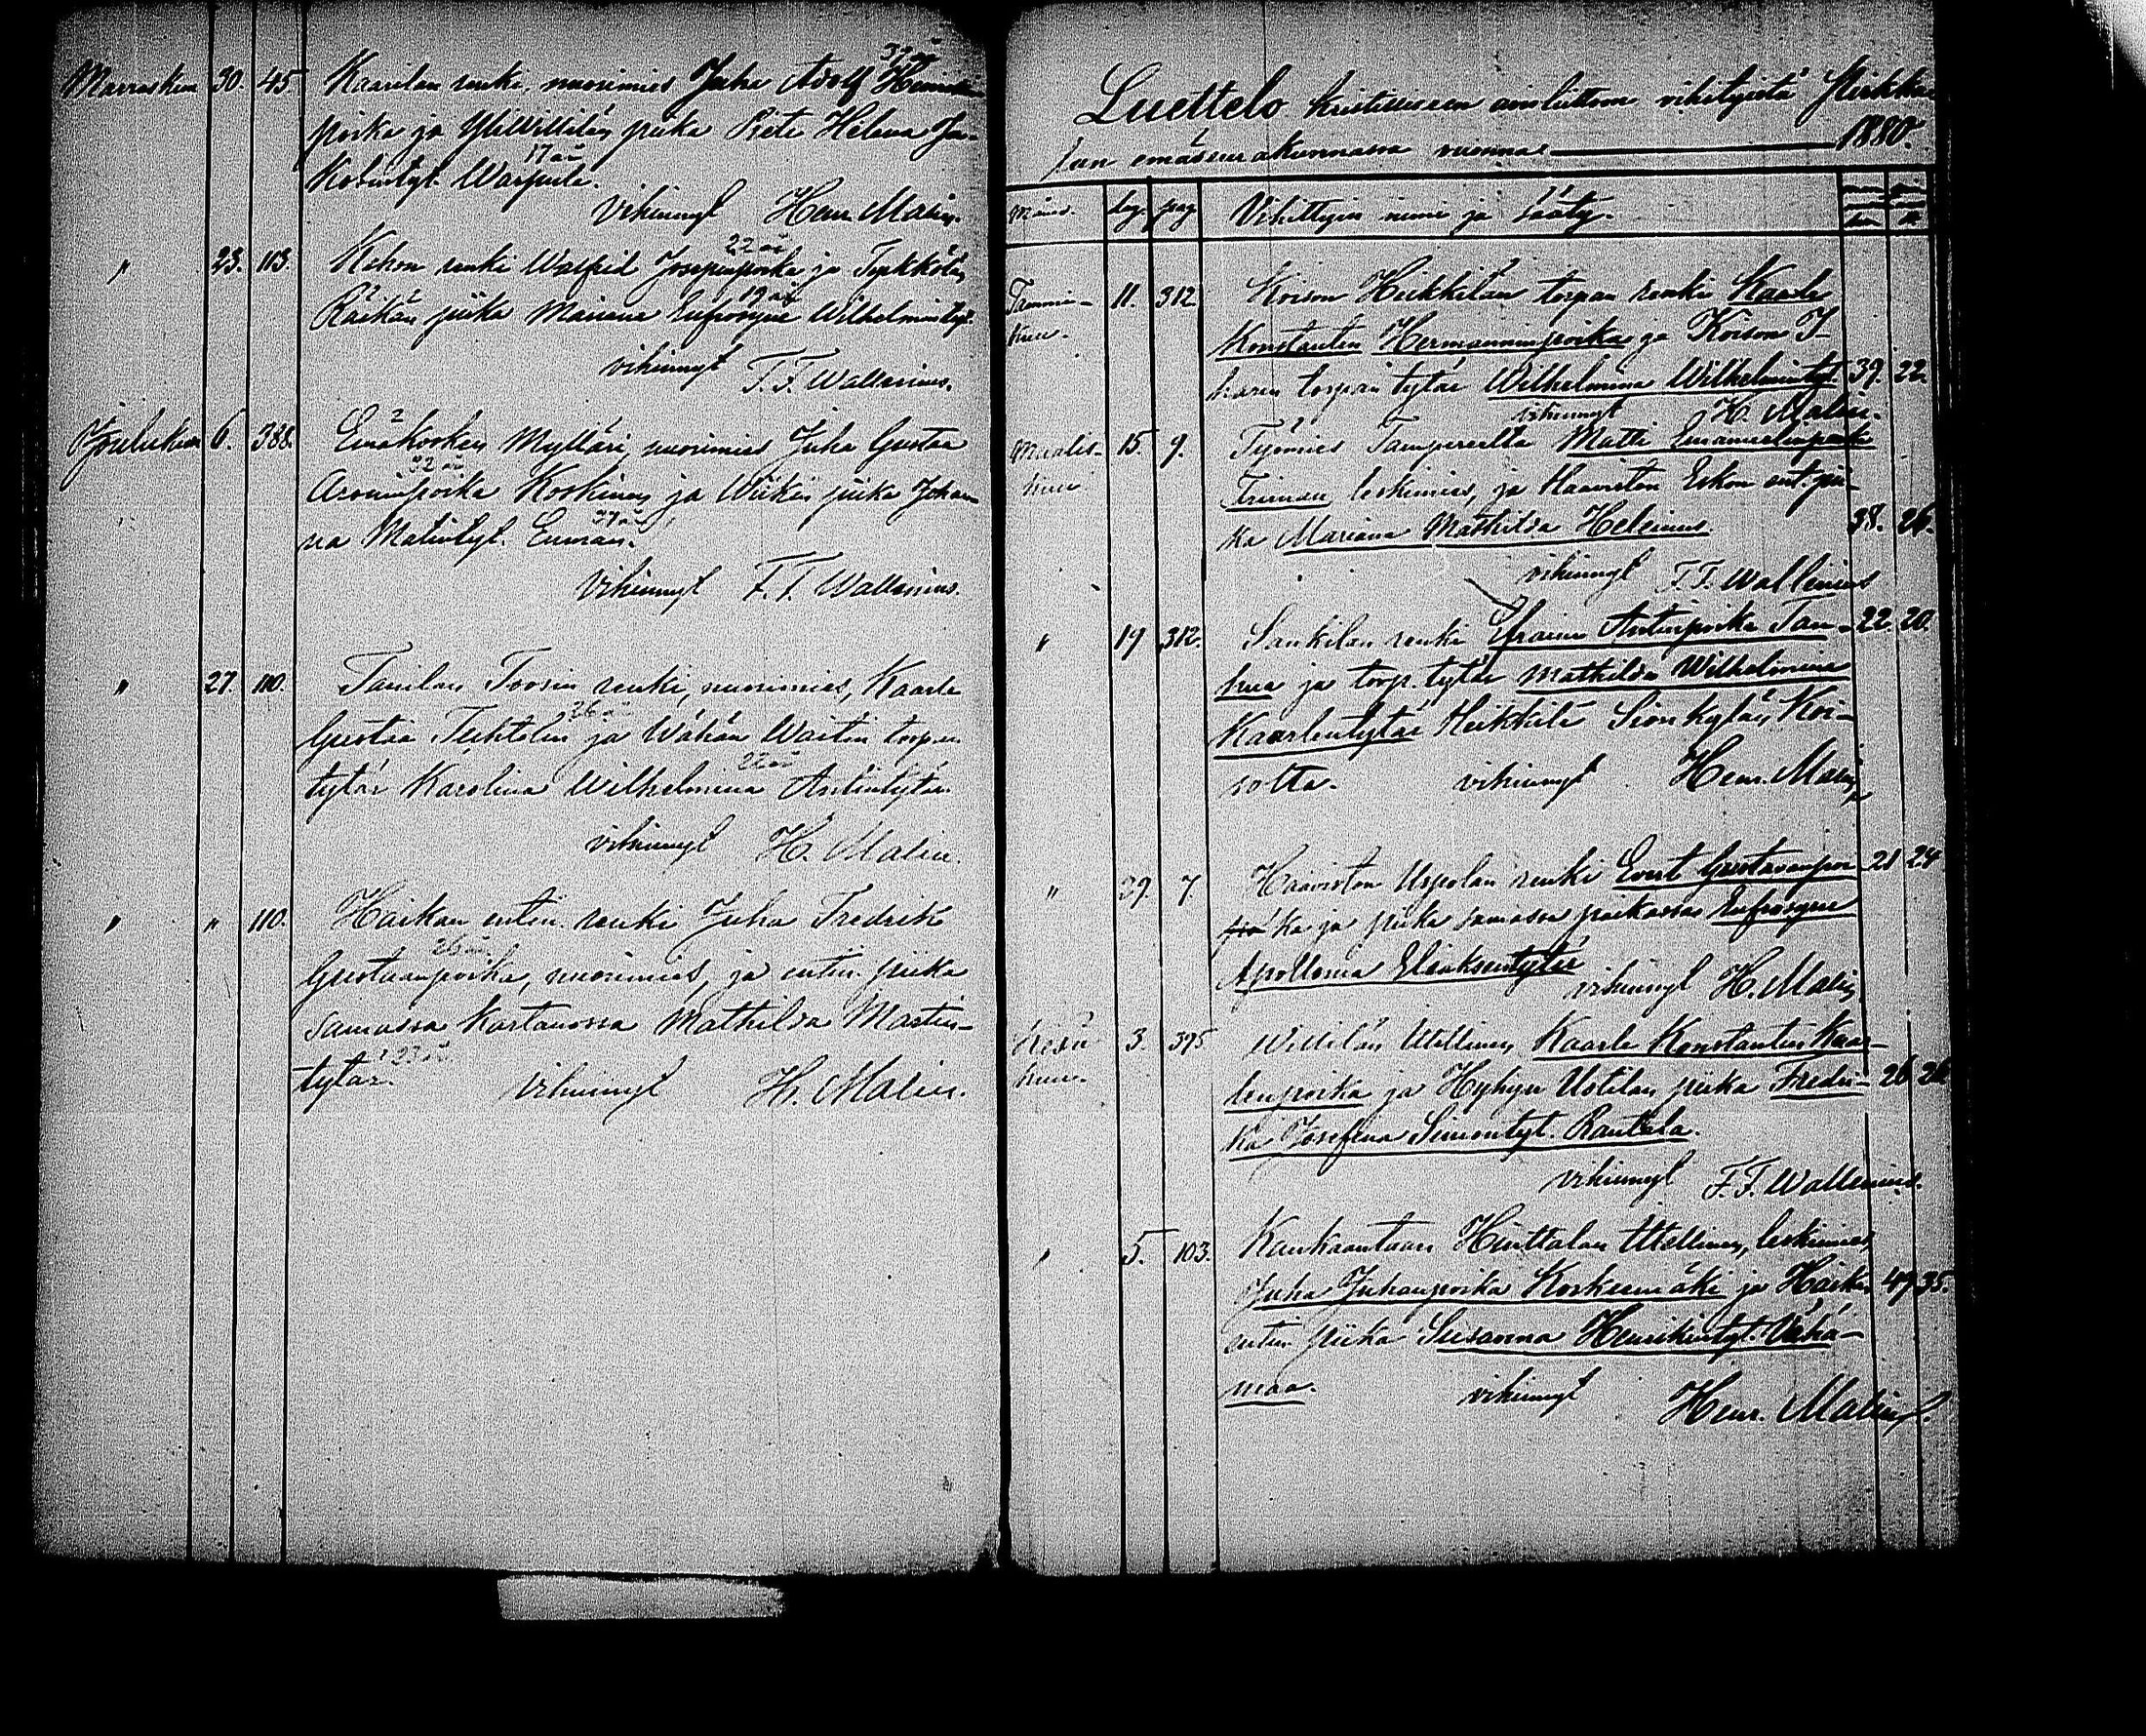 Marraskuu 30. 45 Kaarilan renki, nuorimies Juha Adolf Heinin-
poika ja YliWillilän piika Brita Helena Ja-
17 aa
kobintyt. Warpula.
vihinnyt Henr. Malin.
" 23. 113. Kohon renki Walfrid Josepinpoika ja Turkkilan
22 aa
Räikän piika Mariana Eufrosyne Wilhelmintyt.
19 aa
vihinnyt F. F. Wallenius.
Joulukuu 6. 388. Emäkosken Mylläri, nuorimies Juha Gustaa
32 aa
Aroninpoika Koskinen ja Wiikin piika Johan-
na Matintyt. Enman.
vihinnyt F. F. Wallenius.
" 27. 110. Tanilan Toosin renki, nuorimies, Kaarle
26
Gustaa Techtolin ja Wähän Waitin torpan
22 aa
tytär Karolina Wilhelmina Antintytär.
vihinnyt H. Malin.
" " 110. Haikan entin. renki Juha Fredrik
26
Gustaanpoika, nuorimies, ja entin. piika
samassa kartanossa Mathilda Martin-
tytär. 23
vihinnyt H. Malin.
Luettelo kristilliseen avioliittoon vihityistä Pirkka-
lan emäseurakunnassa vuonna 1880.
siv. pag. Vihittyin nimi ja sääty.
Tammi- 11. 312 Koison Heikkilän torpan renki Kaarle
kuu. Konstantin Hermanninpoika ja Koison I-
karin torpan tytär Wilhelmina Wilhelmintyt 39. 22.
vihinnyt H. Malin.
Maalis- 15. 9. Työmies Tampereelta Matti Emanuelinpoika
kuu Friman leskimies, ja Haaviston Eskon ent. pii-
ka Mariana Mathilda Helenius. 38. 26.
vihinnyt F. F. Wallenius
" 19 312. Sankilan renki Efraim Antinpoika Tan- 22. 20.
hua ja torp. tytär Mathilda Wilhelmina
Kaarlentytär Heikkilä Sionkylän Koi-
solta. vihinnyt Henr. Malin
" 29. 7. Haaviston Uspolan renki Evert Gustavanpoi- 21 24
ka ja piika samassa paikassa Eufrosyne
Apollonia Eliaksentytär
vihinnyt H. Malin
Kesä 3. 395 Willilän Itsellinen Kaarle Konstantin Kaar-
kuu. lenpoika ja Hyhkyn Uotilan piika Fredri- 26 26
ka Josefina Simontyt. Rantala.
vihinnyt F. F. Wallenius.
" 5. 103. Kankaantaan Hinttalan Itsellinen, leskimies
Juha Juhanpoika Koskeemäki ja Haikan 49 35.
entin. piika Susanna Henrikintyt. Vähä-
maa. vihinnyt Henr. Malin.